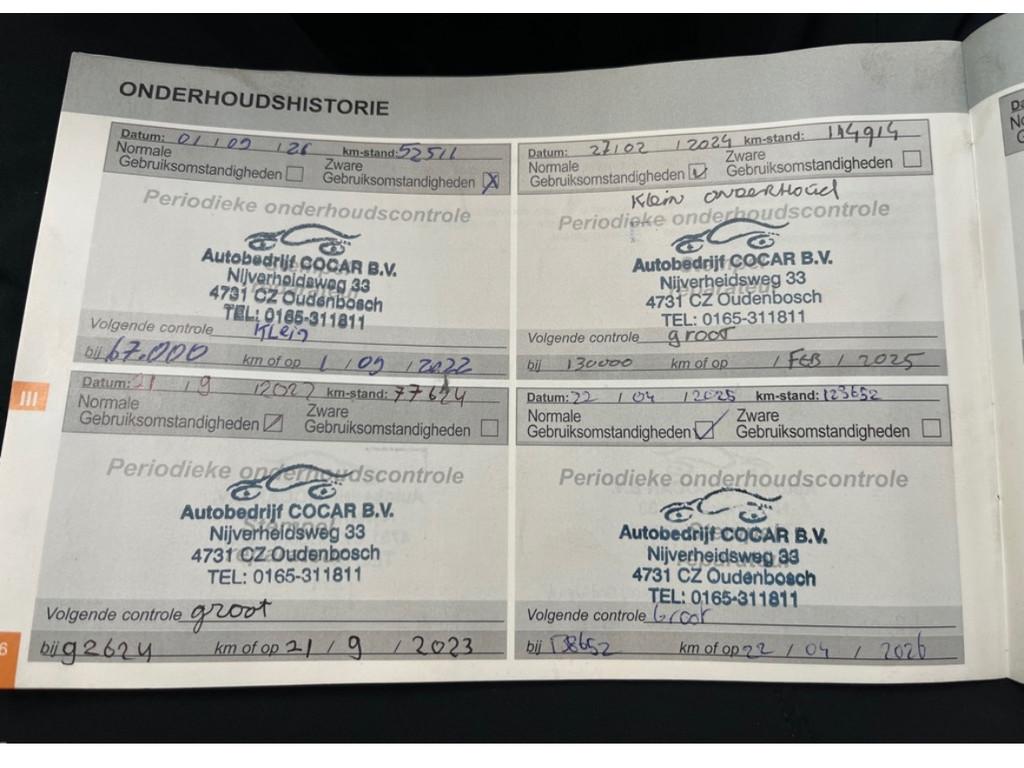 ONDERHOUDSHISTORIE
Datum: 01 / 09 / km-stand: 52511
Normale Gebruiksomstandigheden Zware Gebruiksomstandigheden X
Periodieke onderhoudscontrole
Autobedrijf COCAR B.V.
Nijverheidsweg 33
4731 CZ Oudenbosch
TEL: 0165-311811
Volgende controle Klein
bij 67.000 km of op 1 / 09 / 2022
Datum: 21 / 9 / 2022 km-stand: 77624
Normale Gebruiksomstandigheden Zware Gebruiksomstandigheden
Periodieke onderhoudscontrole
Autobedrijf COCAR B.V.
Nijverheidsweg 33
4731 CZ Oudenbosch
TEL: 0165-311811
Volgende controle groot
bij 92624 km of op 21 / 9 / 2023
Datum: 27 / 02 / 2024 km-stand: 114914
Normale Gebruiksomstandigheden Zware Gebruiksomstandigheden
Klein onderhoud
Periodieke onderhoudscontrole
Autobedrijf COCAR B.V.
Nijverheidsweg 33
4731 CZ Oudenbosch
TEL: 0165-311811
Volgende controle groot
bij 130000 km of op / FEB / 2025
Datum: 22 / 04 / 2025 km-stand: 123652
Normale Gebruiksomstandigheden Zware Gebruiksomstandigheden
Periodieke onderhoudscontrole
Autobedrijf COCAR B.V.
Nijverheidsweg 33
4731 CZ Oudenbosch
TEL: 0165-311811
Volgende controle Groot
bij 138652 km of op 22 / 04 / 2026
III
6